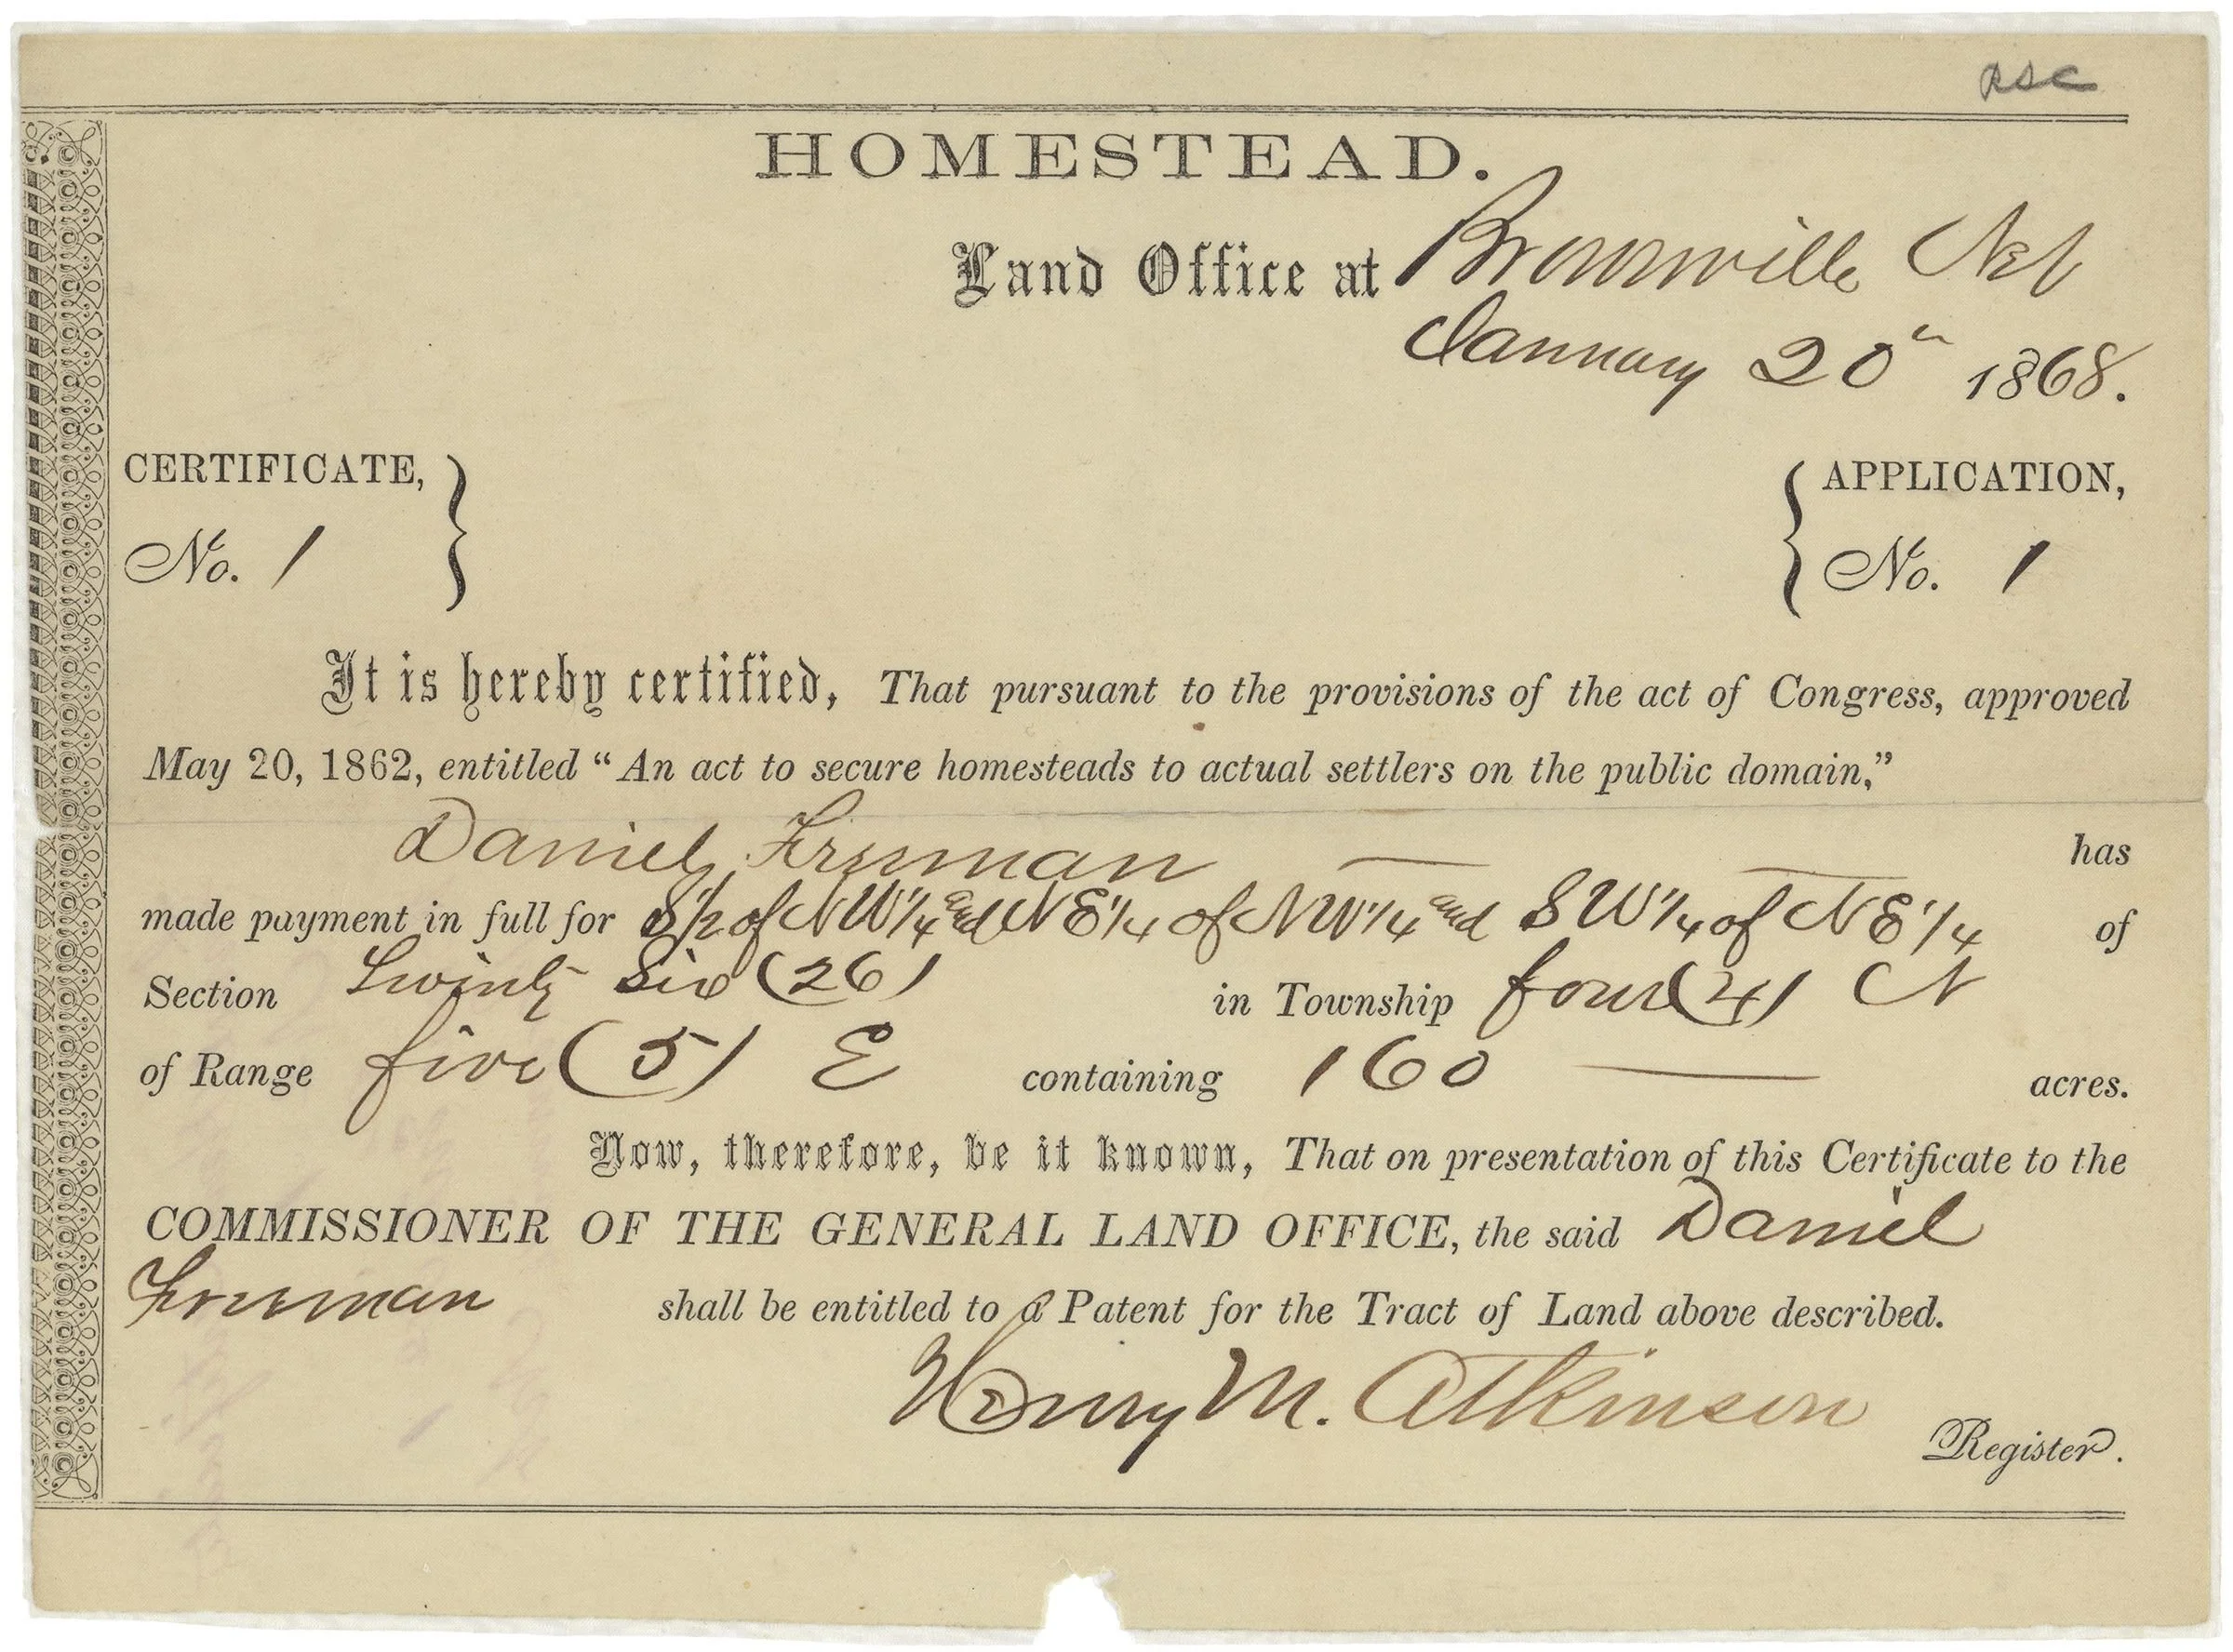 RSC
HOMESTEAD.
Land Office at Brownville Neb
January 20th 1868.
CERTIFICATE, APPLICATION,
No. 1 No. 1
It is hereby certified, That pursuant to the provisions of the act of Congress, approved
May 20, 1862, entitled “An act to secure homesteads to actual settlers on the public domain,”
Daniel Freeman has
made payment in full for S 1/2 of NW 1/4 and NE 1/4 of NW 1/4 and SW 1/4 of NE 1/4 of
Section Twenty Six (26) in Township four (4) N
of Range five (5) E containing 160 acres.
Now, therefore, be it known, That on presentation of this Certificate to the
COMMISSIONER OF THE GENERAL LAND OFFICE, the said Daniel
Freeman shall be entitled to a Patent for the Tract of Land above described.
Henry M. Atkinson
Register.